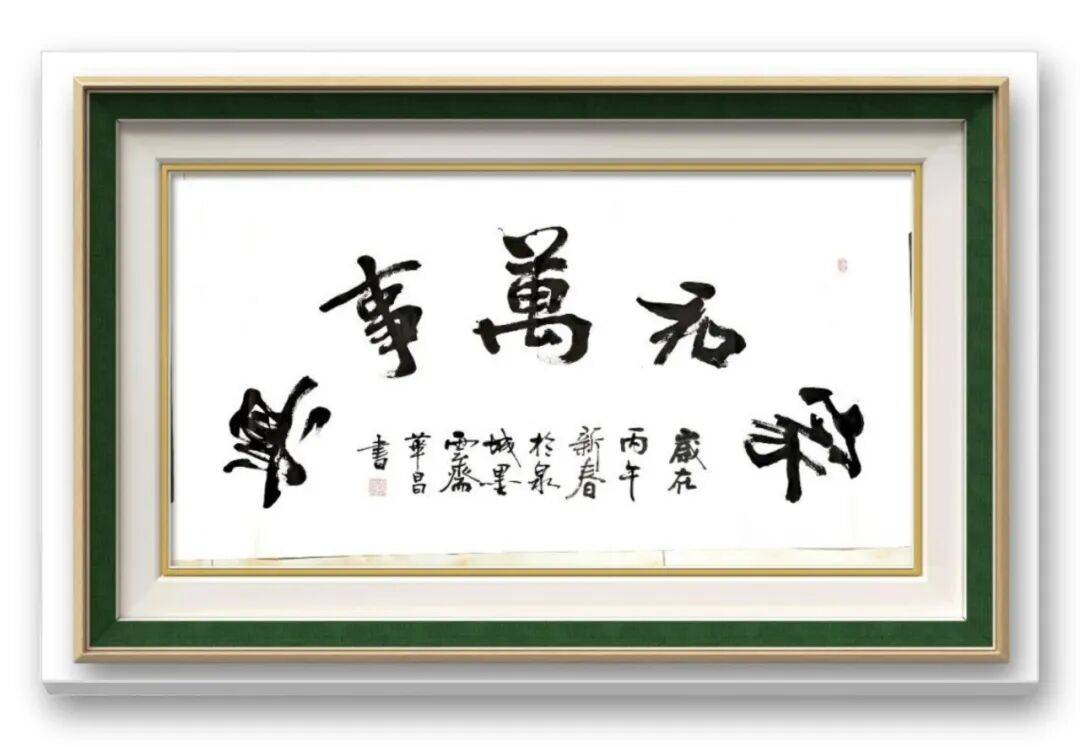 家和萬事興
歲在
丙午
新春
於泉
城墨
雲齋
華昌
書